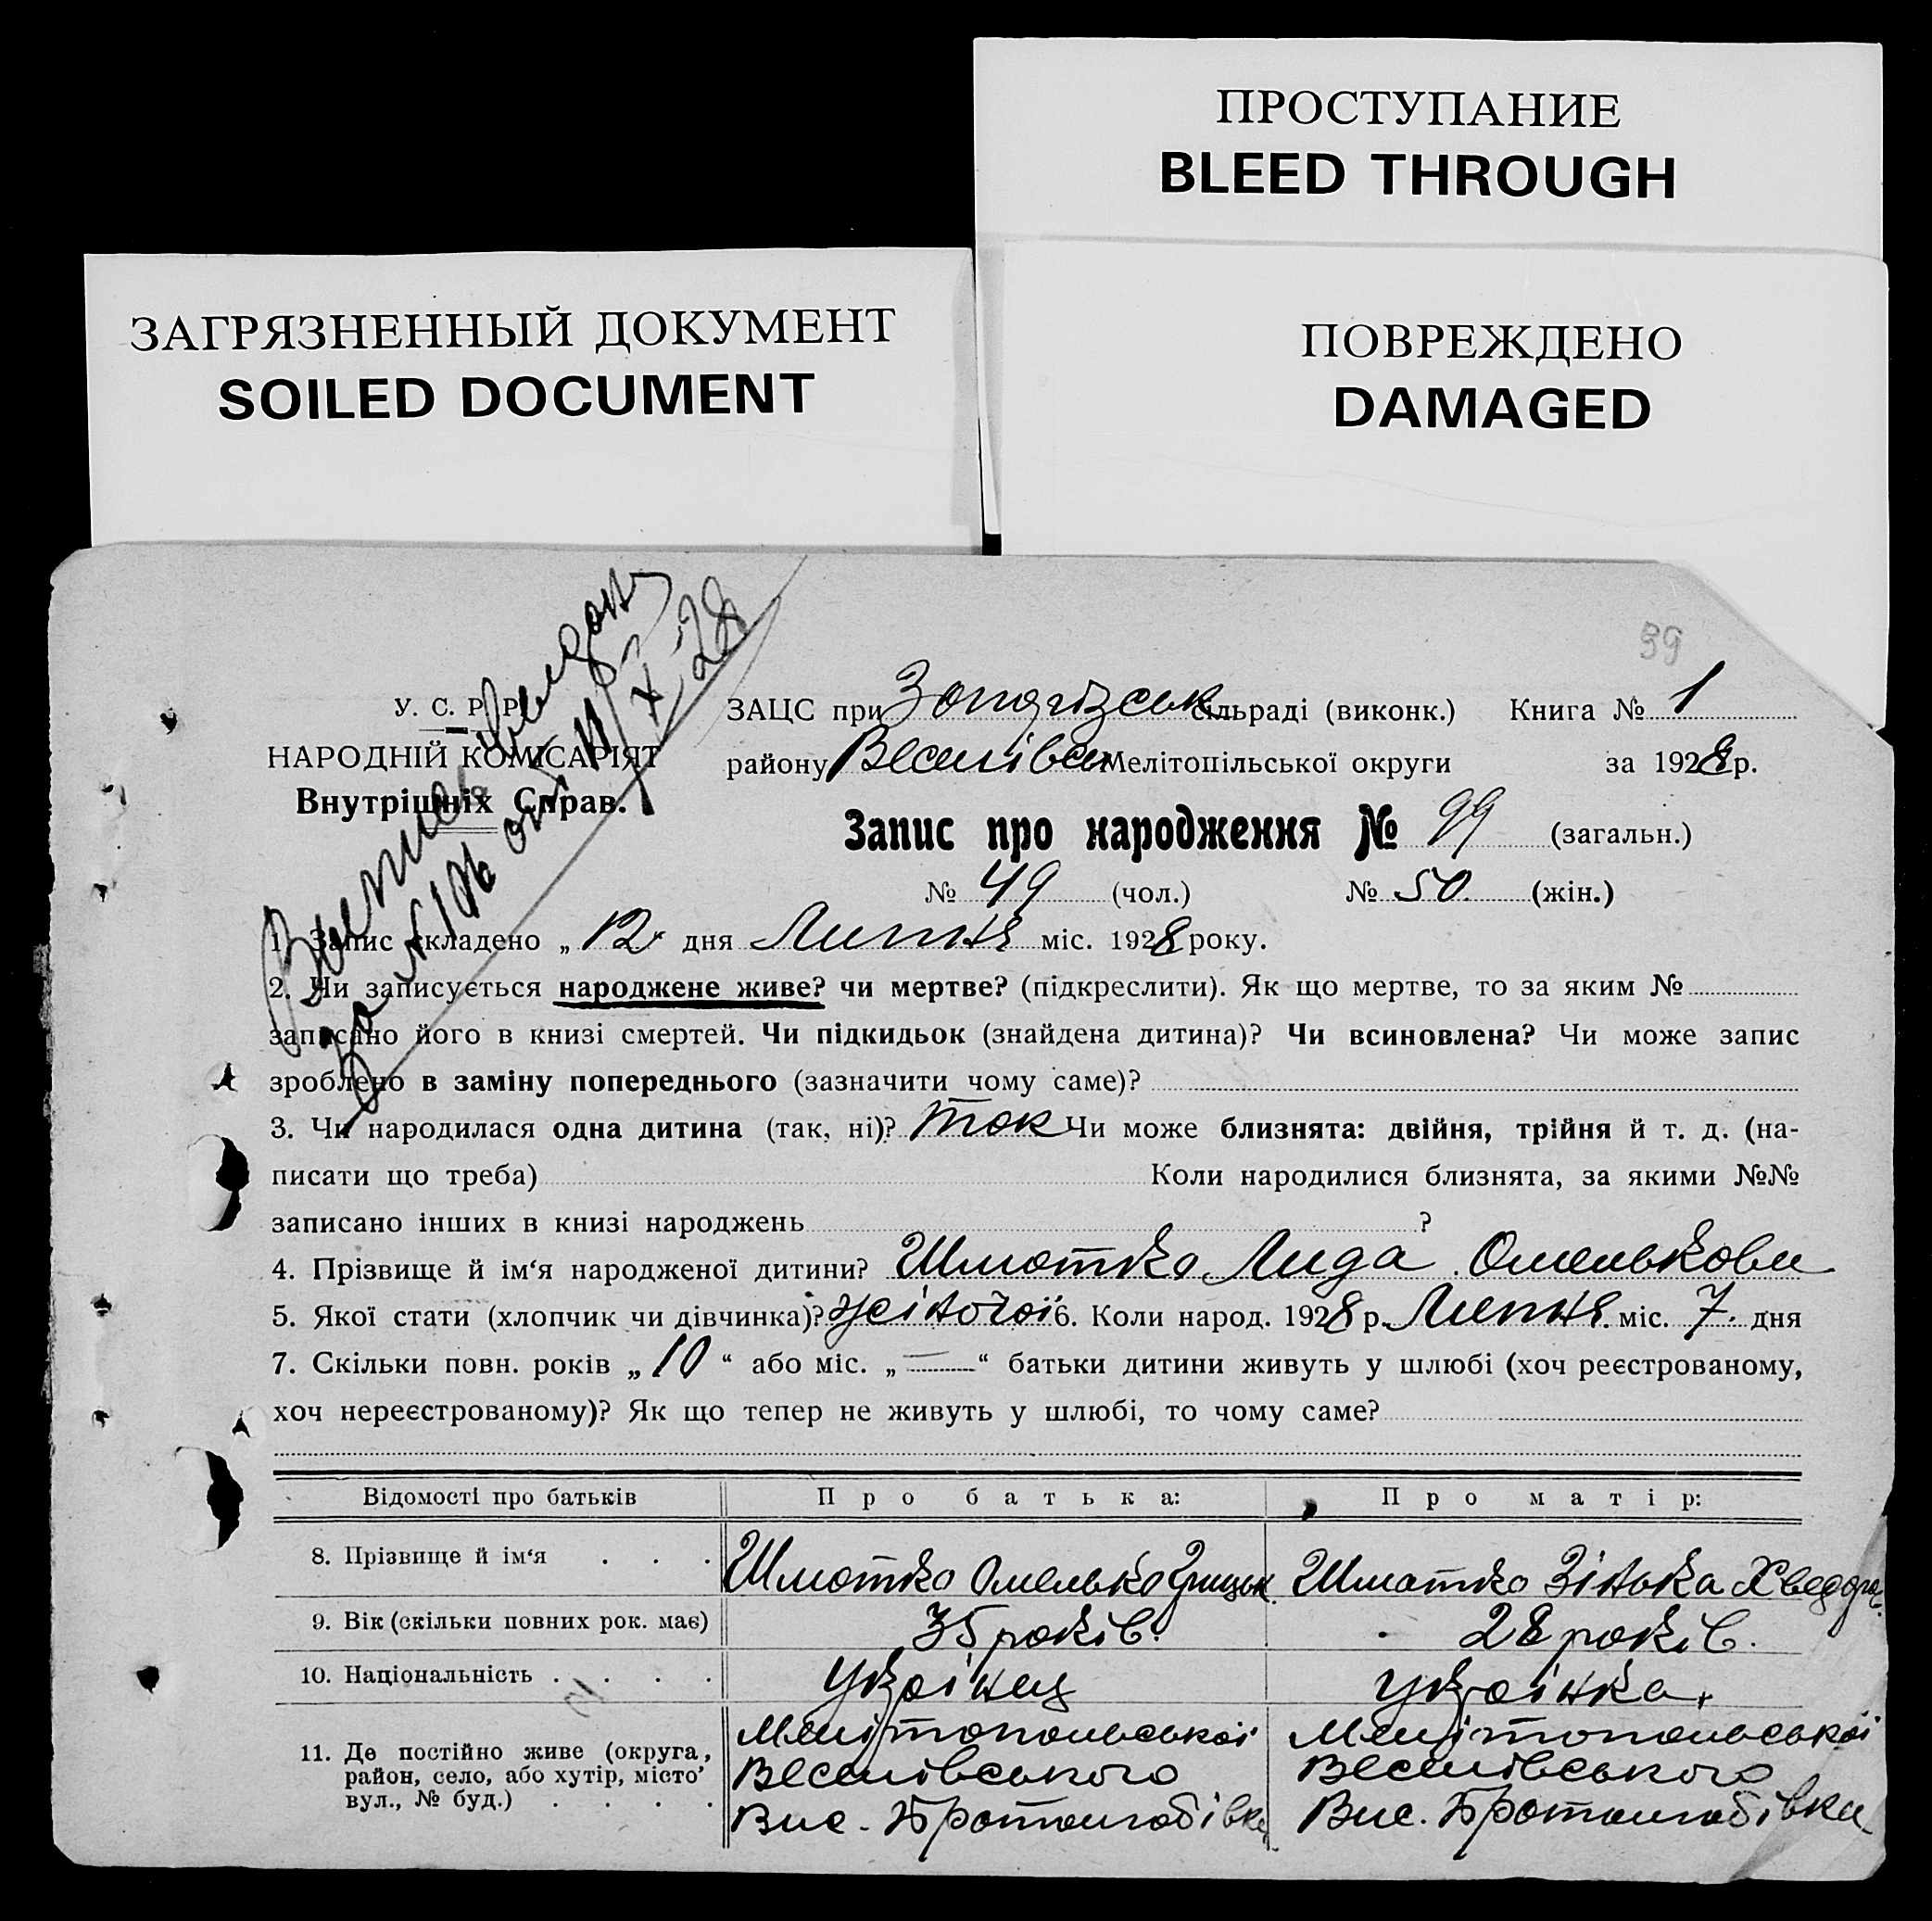 ПРОСТУПАНИЕ
BLEED THROUGH
ЗАГРЯЗНЕННЫЙ ДОКУМЕНТ
SOILED DOCUMENT
ПОВРЕЖДЕНО
DAMAGED
39
У. С. Р. Р.
НАРОДНІЙ КОМІСАРІЯТ
Внутрішніх Справ.
за № 106 от 11/X-28
ЗАЦС при сільраді (виконк.) Книга № 1
району Веселівськ Мелітопільської округи за 1928 р.
Запис про народження № 99 (загальн.)
№ 49 (чол.) № 50 (жін.)
1. Запис складено „12" дня Липня міс. 1928 року.
2. Чи записується народжене живе? чи мертве? (підкреслити). Як що мертве, то за яким №
записано його в книзі смертей. Чи підкидьок (знайдена дитина)? Чи всиновлена? Чи може запис
зроблено в заміну попереднього (зазначити чому саме)?
3. Чи народилася одна дитина (так, ні)? так Чи може близнята: двійня, трійня й т. д. (на-
писати що треба) Коли народилися близнята, за якими №№
записано інших в книзі народжень ?
4. Прізвище й ім‘я народженої дитини? Шматко Лида Омельковн
5. Якої стати (хлопчик чи дівчинка)? жіночої 6. Коли народ. 1928 р. Липня міс. 7 дня
7. Скільки повн. років „10“ або міс. „—“ батьки дитини живуть у шлюбі (хоч реєстрованому,
хоч нереєстрованому)? Як що тепер не живуть у шлюбі, то чому саме?
Відомості про батьків Про батька: Про матір:
8. Прізвище й ім‘я . . . Шматко Омелько Грицьк. Шматко Зінька Хведор.
9. Вік (скільки повних рок. має) 35 років. 28 років.
10. Національність . . . . Украінец Украінка
11. Де постійно живе (округа, район, село, або хутір, місто’ вул., № буд.) . . . .
Мелітопольськоі
Веселівського
Вис.
Мелітопольськоі
Веселівського
Вис.